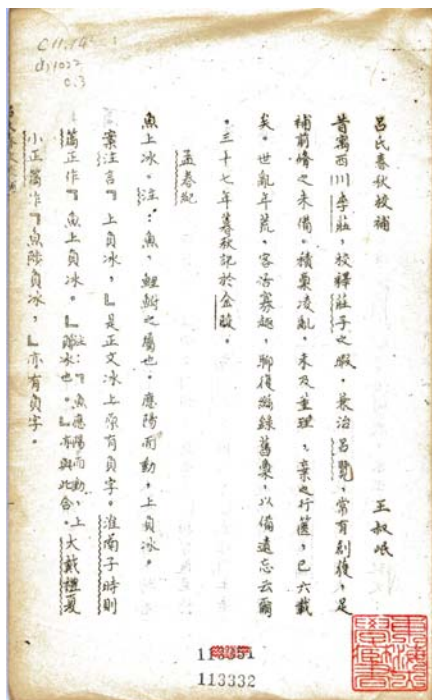 C11.14
d)1022
0.3
呂氏春秋校補
王叔岷
昔寓西川李莊，校釋莊子之暇，兼治呂覽，常有創獲，足
補前脩之未備。積稾凌亂，未及董理，棄之行篋，已六載
矣。世亂年荒，客居寡趣，聊復繕錄舊稾，以備遺忘云爾
。三十七年暮秋記於金陵。
孟春紀
魚上冰。注：魚，鯉鮒之屬也。應陽而動，上負冰。
案注言『上負冰，』是正文冰上原有負字。淮南子時則
篇正作『魚上負冰。』注：『魚應陽而動，上負冰也。』亦與此合。大戴禮夏
小正篇作『魚陟負冰，』亦有負字。
113332